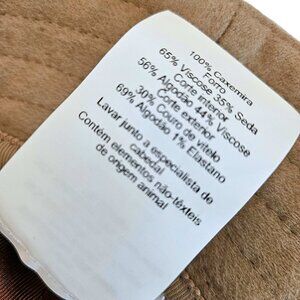 100% Caxemira
Forro
65% Viscose 35% Seda
Corte interior
56% Algodão 44% Viscose
Corte exterior
30% Couro de vitelo
69% Algodão 1% Elastano
Lavar junto a especialista de
cabedal
Contém elementos não-têxteis
de origem animal